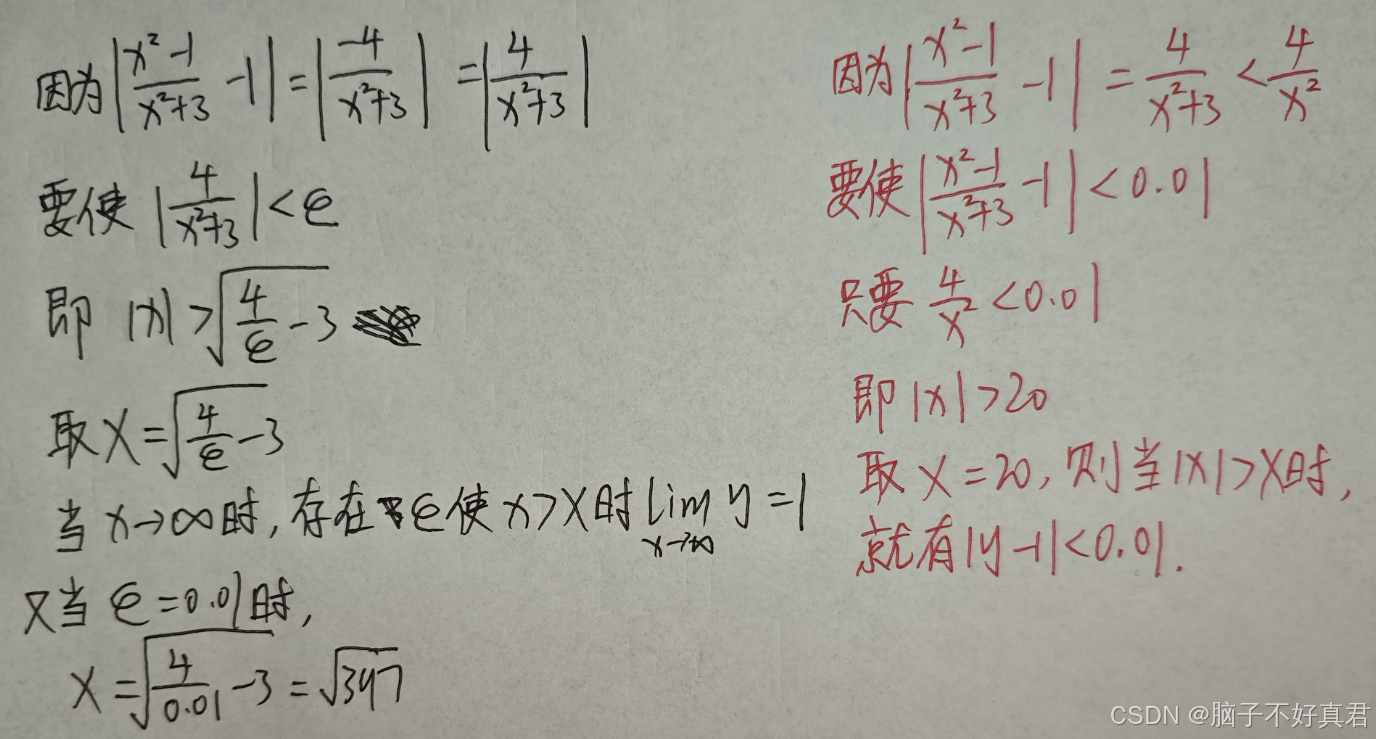 因为|x²-1/x²+3 -1|=|-4/x²+3|=|4/x²+3|
要使|4/x²+3|<ϵ
即 |x|>√(4/ϵ-3)
取X=√(4/ϵ-3)
当x→∞时,存在ϵ使x>X时lim y=1
x→∞
又当ϵ=0.01时,
X=√(4/0.01-3)=√397
因为|x²-1/x²+3 -1|=4/x²+3<4/x²
要使|x²-1/x²+3 -1|<0.01
只要 4/x²<0.01
即|x|>20
取X=20,则当|x|>X时,
就有|y-1|<0.01.
CSDN @脑子不好真君